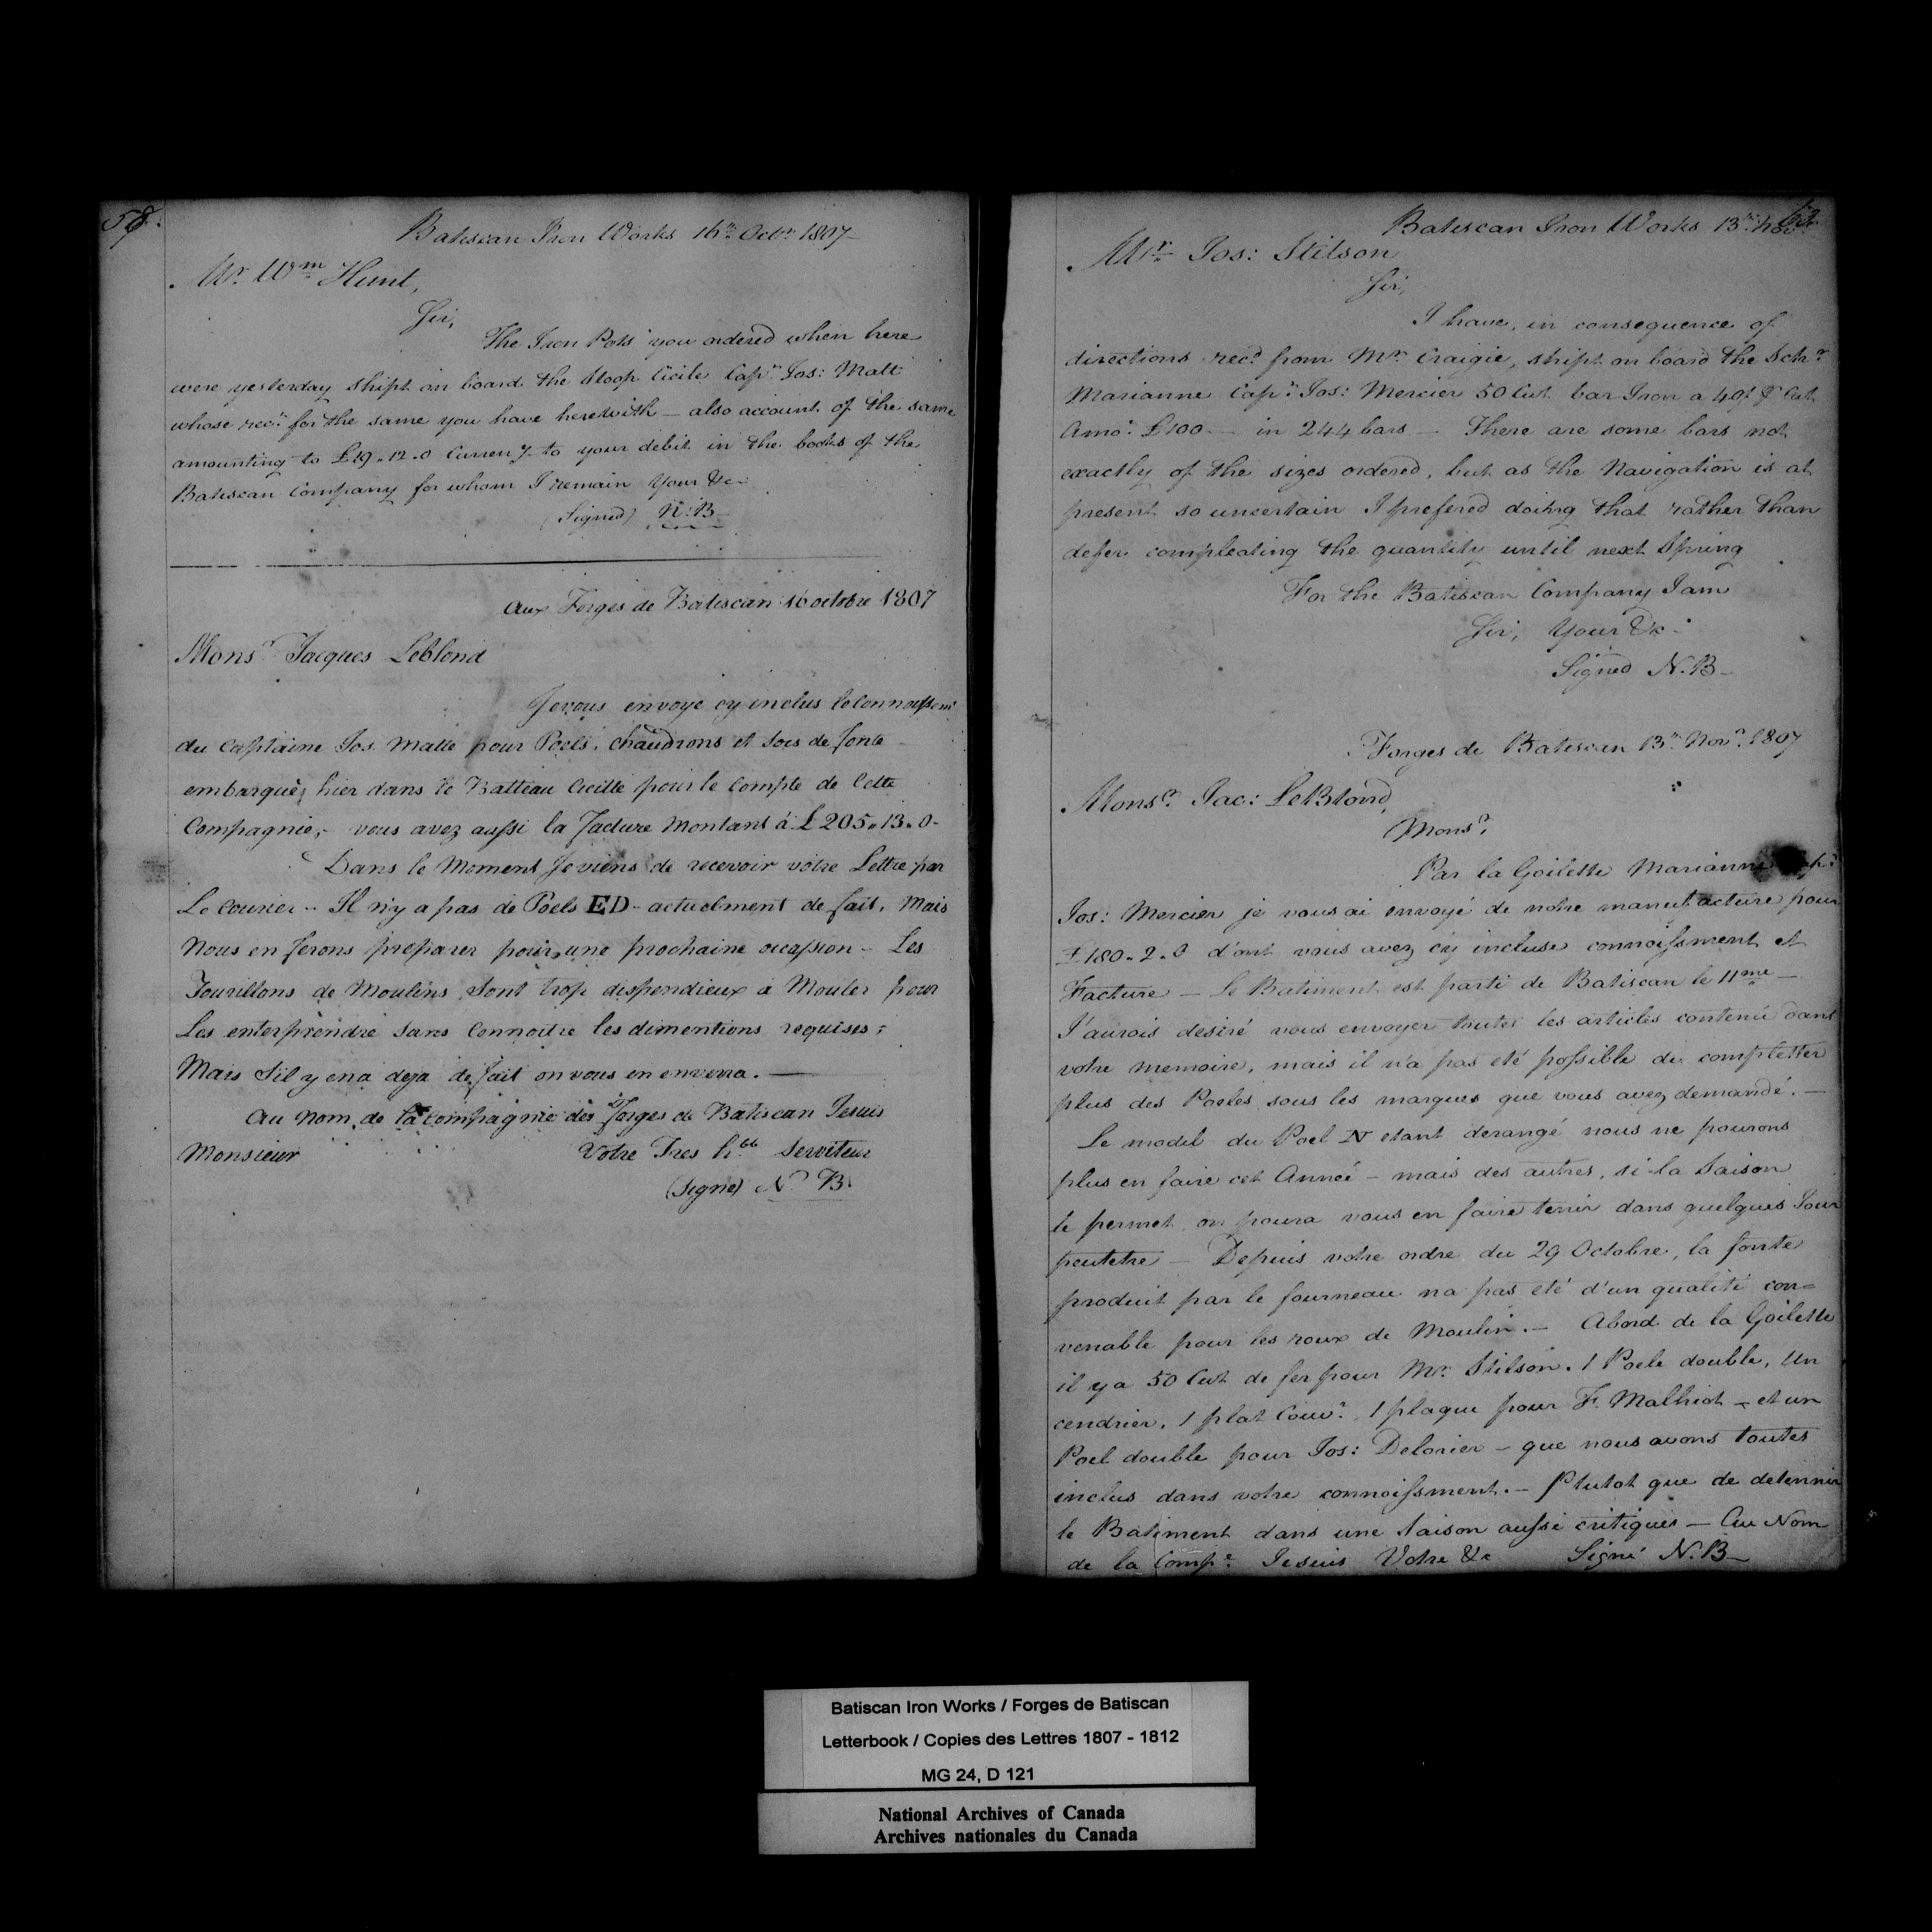 58.
Batiscan Iron Works 16th Octr 1807
Mr. Wm Hunt,
Sir,
The Iron Pots you ordered when here
were yesterday shipt on board the Sloop Cicile Capn Jos: Matt
whose rect for the same you have herewith – also account of the same
amounting to £19.12.0 Currency to your debit in the books of the
Batiscan Company for whom I remain Your &c
(Signed) N:B
Aux Forges de Batiscan 16 octobre 1807
Monsr Jacques Leblond
Je vous envoye cy inclus le Connoissemt
du Captaine Jos. Matte pour Poels, chaudrons et socs de fonte
embarqués hier dans le Batteau Cicille pour le Compte de Cette
Compagnie, vous avez aussi la facture Montant à £205.13.0
Dans le Moment Je viens de recevoir votre Lettre par
Le Courier – Il n'y a pas de Poels ED – actuelment de fait, Mais
Nous en ferons preparer pour une prochaine occasion – Les
Tourillons de Moulins sont trop dispendieux a Mouler pour
Les enterprendre sans Connoitre les dimentions requises;
Mais S'il y en a deja de fait on vous en enverra. —
Au Nom de la Compagnie des Forges de Batiscan Jesuis
Monsieur Votre Tres hbl Serviteur
(Signé) N. B.
Batiscan Iron Works 13th
Mr. Jos: Stilson
Sir,
I have, in consequence of
directions recd from Mr. Craigie, shipt on board the Schr
Marianne Capn Jos: Mercier 50 Cwt bar Iron a 40/ pr Cwt
Amot £100 — in 244 bars — There are some bars not
exactly of the sizes ordered, but as the Navigation is at
present so uncertain I prefered doihg that rather than
defer compleating the quantity until next Spring
For the Batiscan Company I am
Sir, Your &c
Signed N.B
Forges de Batiscan 13th Novr 1807
Monsr Jac: LeBlond,
Monsr,
Par la Goilette Marianne
Jos: Mercier je vous ai envoyé de notre manufacture pour
£180.2.0 d'ont vous avez cy incluse connoissment et
Facture — Le Batiment est parti de Batiscan le 11me —
J'aurois desiré vous envoyer toutes les articles contenu dans
votre memoire, mais il n'a pas eté possible de completter
plus des Poeles sous les marques que vous avez demandé. —
Le model du Poel N etant derangé nous ne pourons
plus en faire cet Année – mais des autres, si la Saison
le permet on poura vous en faire tenir dans quelques Jour
peutetre — Depuis votre ordre du 29 Octobre, la fonte
produit par le fourneau na pas eté d'un qualité con=
venable pour les roux de Moulin. — Abord de la Goilette
il y a 50 Cwt de fer pour Mr. Stilson. 1 Poele double, Un
cendrier, 1 plat Couvr, 1 plaque pour F. Malhiot – et un
Poel double pour Jos: Delorier – que nous avons toutes
inclus dans votre connoissment. — Plutot que de detennir
le Batiment dans une Saison aussi critiques — Au Nom
de la Compe Jesuis Votre &c Signé N.B
Batiscan Iron Works / Forges de Batiscan
Letterbook / Copies des Lettres 1807 - 1812
MG 24, D 121
National Archives of Canada
Archives nationales du Canada